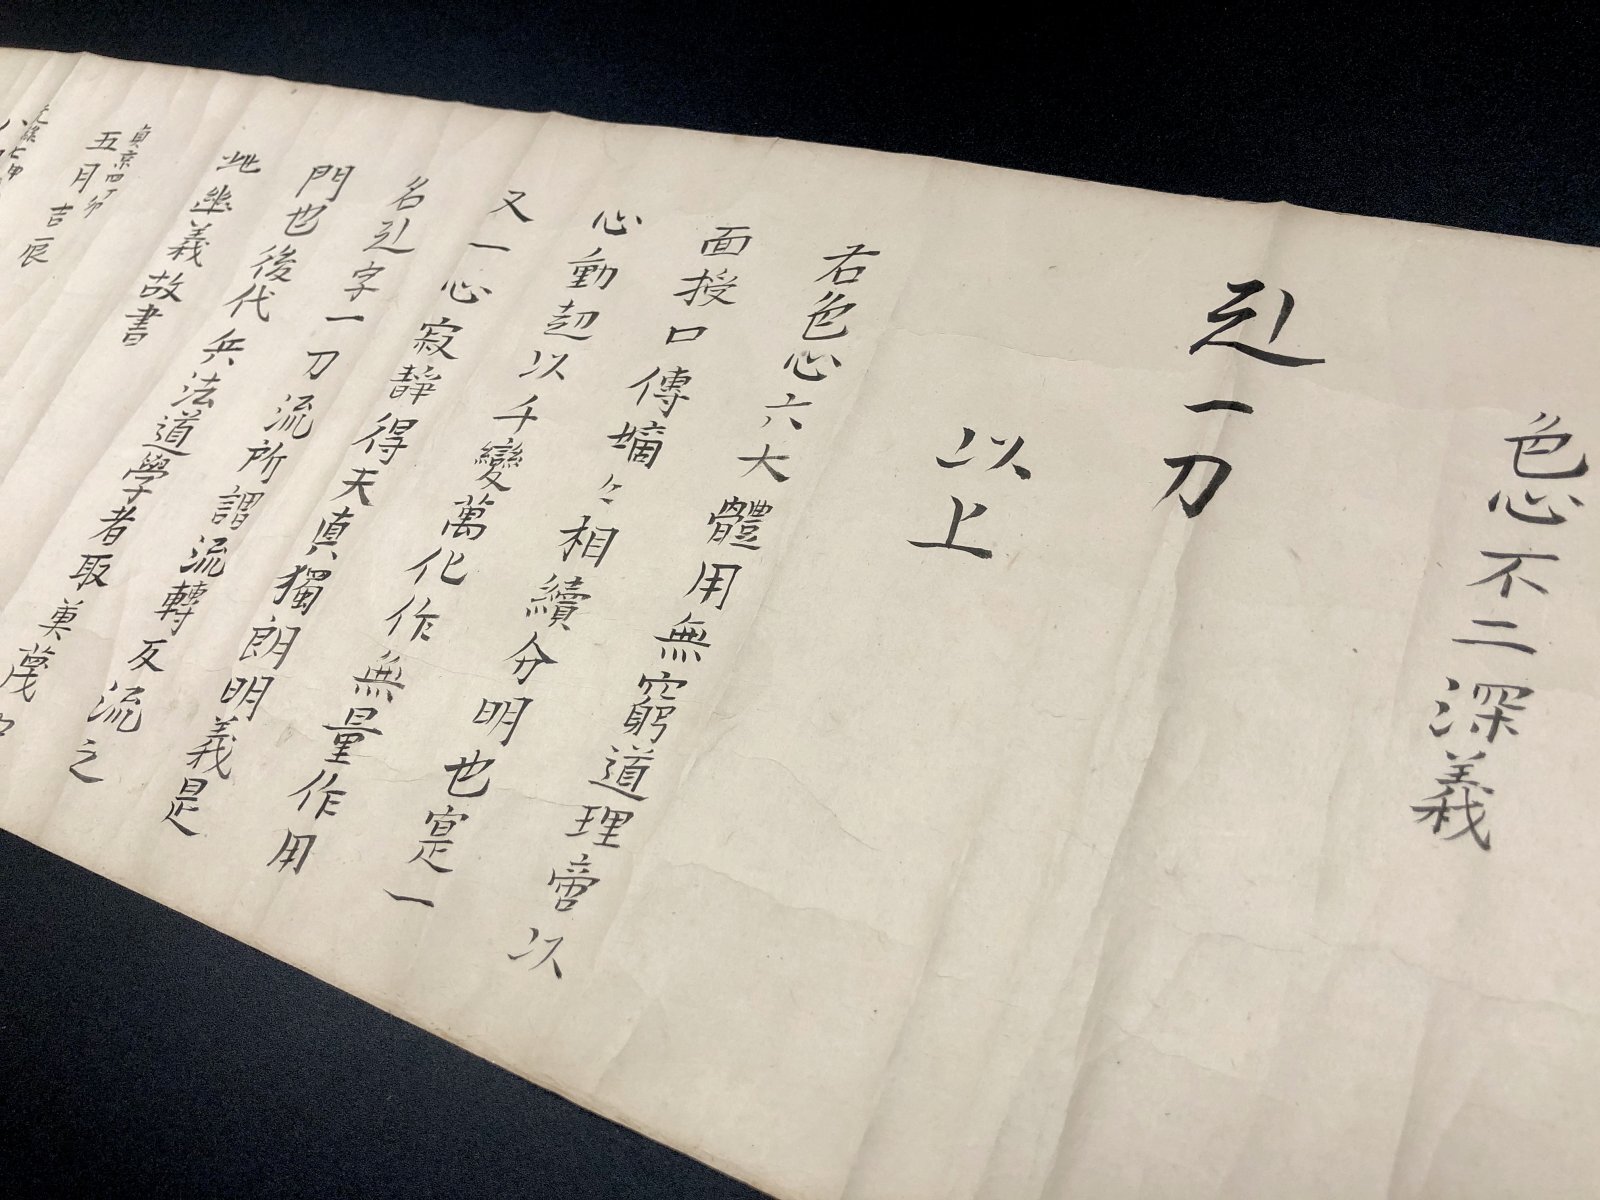 色心不二深義
卍一刀
以上
右色心六大體用無窮道理啻以
面授口傳嫡々相續分明也寔一
心動起以千變萬化作無量作用
又一心寂静得天真獨朗明義是
名 字一刀流所謂流轉反流之
門也後代兵法道學者取
此幽義故書
貞享四丁卯
五月吉辰
元禄七甲